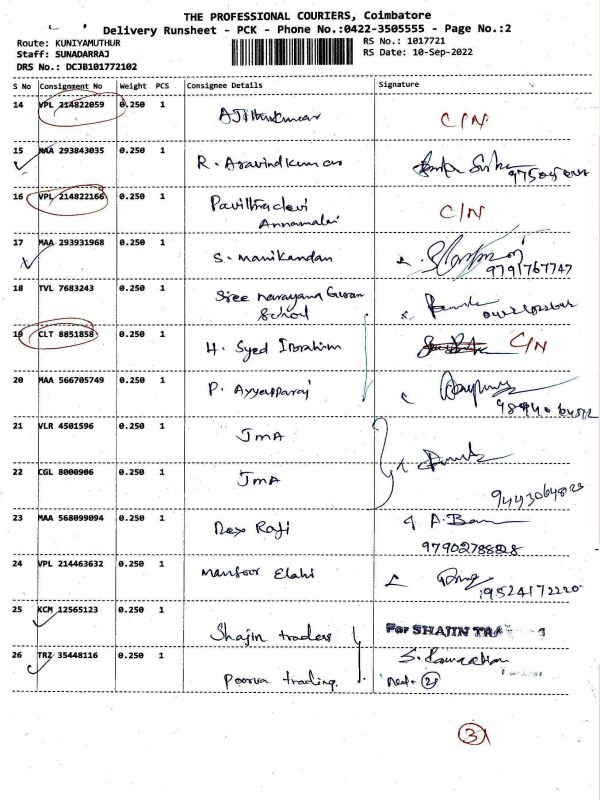 THE PROFESSIONAL COURIERS, Coimbatore
Delivery Runsheet - PCK - Phone No.:0422-3505555 - Page No.:2
Route: KUNIYAMUTHUR RS No.: 1017721
Staff: SUNADARRAJ RS Date: 10-Sep-2022
DRS No.: DCJB101772102
S No Consignment No Weight PCS Consignee Details Signature
14 VPL 214822059 0.250 1 C/N
15 MAA 293843035 0.250 1 R. Aravindkumar
16 VPL 214822166 0.250 1 Pavithradevi C/N
Annamalai
17 MAA 293931968 0.250 1 S. Manikandan
9791767747
18 TVL 7683243 0.250 1 Sree narayana Guran
School
19 CLT 8851858 0.250 1 H. Syed Ibrahim C/N
20 MAA 566705749 0.250 1 P. Ayyapparaj
21 VLR 4501596 0.250 1 JMA
22 CGL 8000906 0.250 1 JMA
23 MAA 568099094 0.250 1 Rex Raji A. Ban
9790278828
24 VPL 214463632 0.250 1 Mansoor Elahi
9524172220
25 KCM 12565123 0.250 1 Shajin traders For SHAJIN
26 TRZ 35448116 0.250 1 Poorva trading.
3